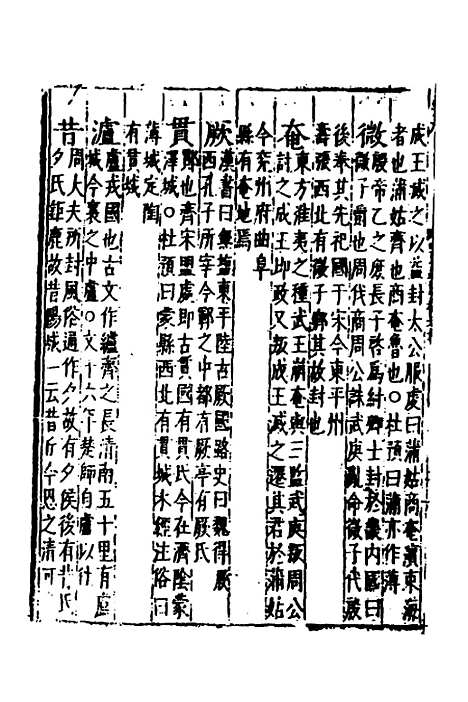 成王滅之以益封太公服虔曰蒲姑商奄濵東海
者也蒲姑齊也商奄魯也○杜預曰蒲亦作薄
微
殷帝乙之庶長子啓爲紂卿士封於畿内國曰
微子爵也周伐商周公誅武庚亂命微子代殷
後奉其先祀國于宋今東平州
壽張西北有微子鄉其故封也
奄
東方淮夷之種武王崩奄與三監武庚叛周公
討之成王即政又叛成王滅之遷其君於蒲姑
今兖州府曲阜
縣有奄地焉
厥
漢書曰無塩東平陸古厥國路史曰魏得厥
西孔子所宰今鄆之中都有厥亭有厥氏
貫
鄆也齊宋盟處即古貫國有貫氏今在濟隂蒙
澤城○杜預曰蒙縣西北有貫城水經注俗曰
薄城定陶
有貫城
瀘
廬戎國也古文作纑齊之長清南五十里有盧
城今襄之中廬○文十六年楚師自廬以往
昔
周大夫所封風俗通作夕故有夕侯後有昔氏
夕氏鉅鹿故昔陽城一云昔析今恩之清河